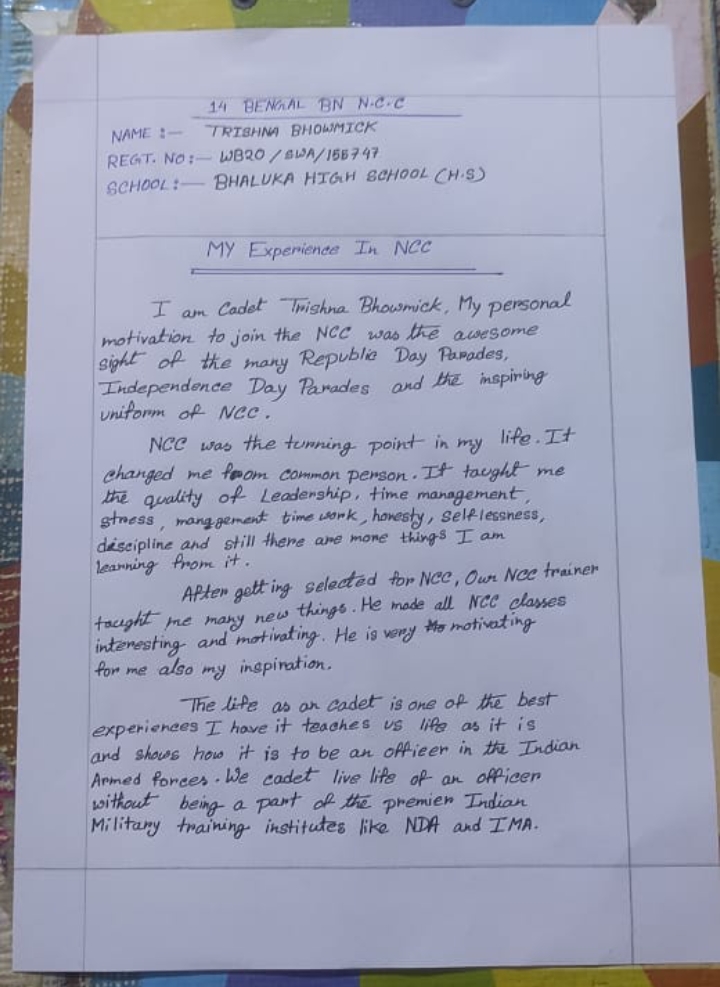 14 BENGAL BN N.C.C
NAME :- TRISHNA BHOWMICK
REGT. NO :- WB20/SWA/155747
SCHOOL :- BHALUKA HIGH SCHOOL (H.S)
MY Experience In NCC
I am Cadet Trishna Bhowmick, My personal
motivation to join the NCC was the awesome
sight of the many Republic Day Parades,
Independence Day Parades and the inspiring
uniform of NCC.
NCC was the turning point in my life. It
changed me from common person. It taught me
the quality of Leadership, time management,
stress, manggement time work, honesty, selflessness,
discipline and still there are more things I am
learning from it.
After getting selected for NCC, Our NCC trainer
taught me many new things. He made all NCC classes
interesting and motivating. He is very motivating
for me also my inspiration.
The life as an cadet is one of the best
experiences I have it teaches us life as it is
and shows how it is to be an officer in the Indian
Armed forces. We cadet live life of an officer
without being a part of the premier Indian
Military training institutes like NDA and IMA.